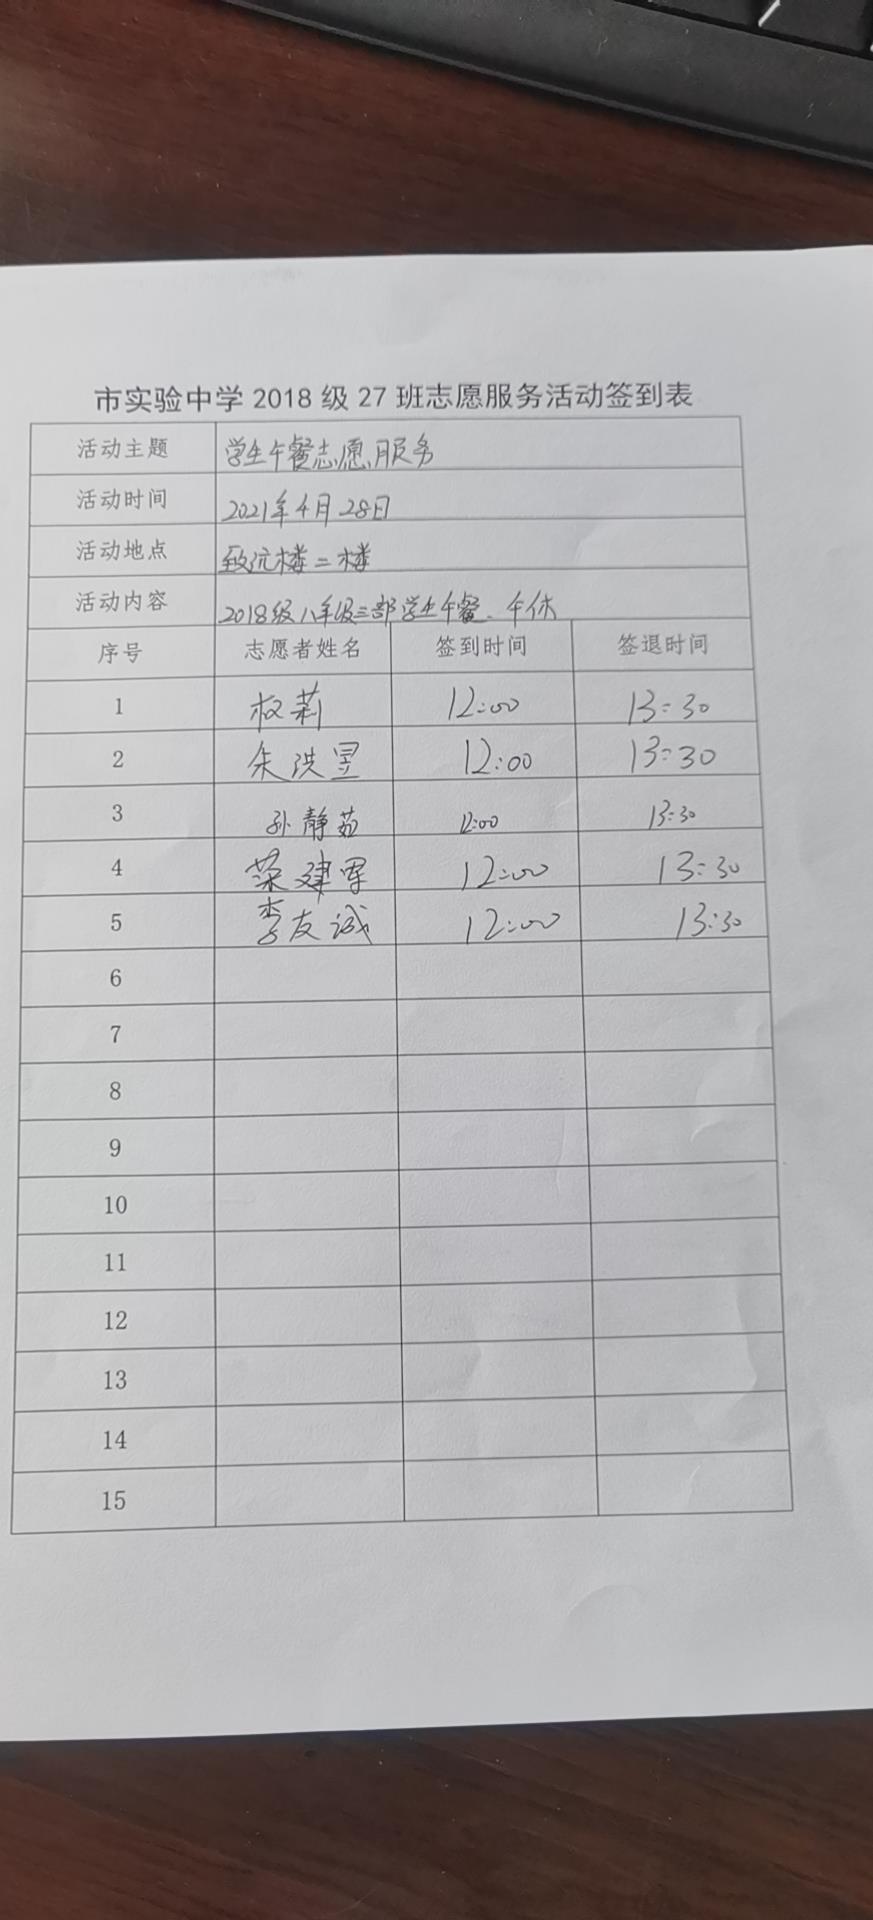 市实验中学2018级27班志愿服务活动签到表
活动主题 学生午餐志愿服务
活动时间 2021年4月28日
活动地点 致远楼二楼
活动内容 2018级八年级三部学生午餐、午休
序号 志愿者姓名 签到时间 签退时间
1 权莉 12:00 13:30
2 朱洪昱 12:00 13:30
3 孙静茹 12:00 13:30
4 荣建军 12:00 13:30
5 李友诚 12:00 13:30
6
7
8
9
10
11
12
13
14
15